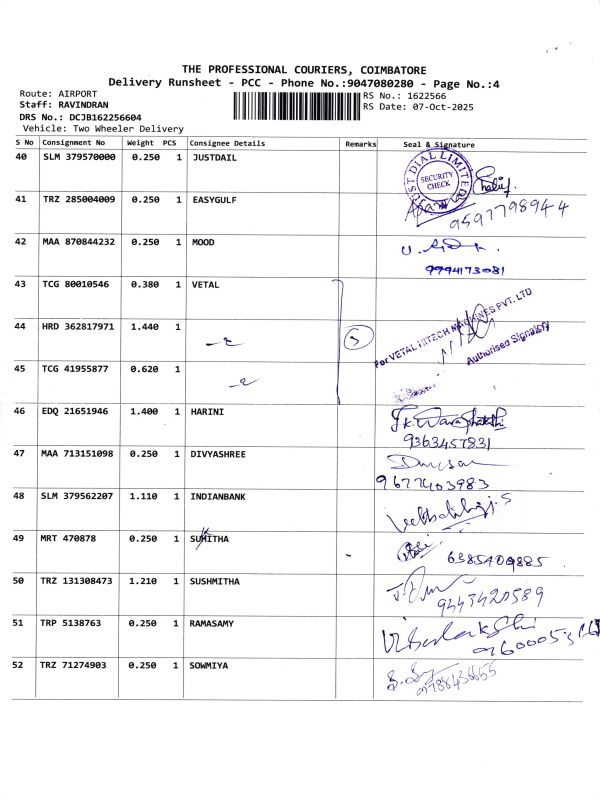 THE PROFESSIONAL COURIERS, COIMBATORE
Delivery Runsheet - PCC - Phone No.:9047080280 - Page No.:4
Route: AIRPORT
Staff: RAVINDRAN
DRS No.: DCJB162256604
Vehicle: Two Wheeler Delivery
RS No.: 1622566
RS Date: 07-Oct-2025
S No Consignment No Weight PCS Consignee Details Remarks Seal & Signature
40 SLM 379570000 0.250 1 JUSTDAIL
JUST DIAL LIMITED
SECURITY CHECK
41 TRZ 285004009 0.250 1 EASYGULF
9597798944
42 MAA 870844232 0.250 1 MOOD
9994173081
43 TCG 80010546 0.380 1 VETAL
For VETAL HITECH MACHINES PVT. LTD
Authorised Signatory
44 HRD 362817971 1.440 1
45 TCG 41955877 0.620 1
46 EDQ 21651946 1.400 1 HARINI
9363457831
47 MAA 713151098 0.250 1 DIVYASHREE
9677403983
48 SLM 379562207 1.110 1 INDIANBANK
49 MRT 470878 0.250 1 SUMITHA
6385409885
50 TRZ 131308473 1.210 1 SUSHMITHA
9443420589
51 TRP 5138763 0.250 1 RAMASAMY
52 TRZ 71274903 0.250 1 SOWMIYA
9788436655